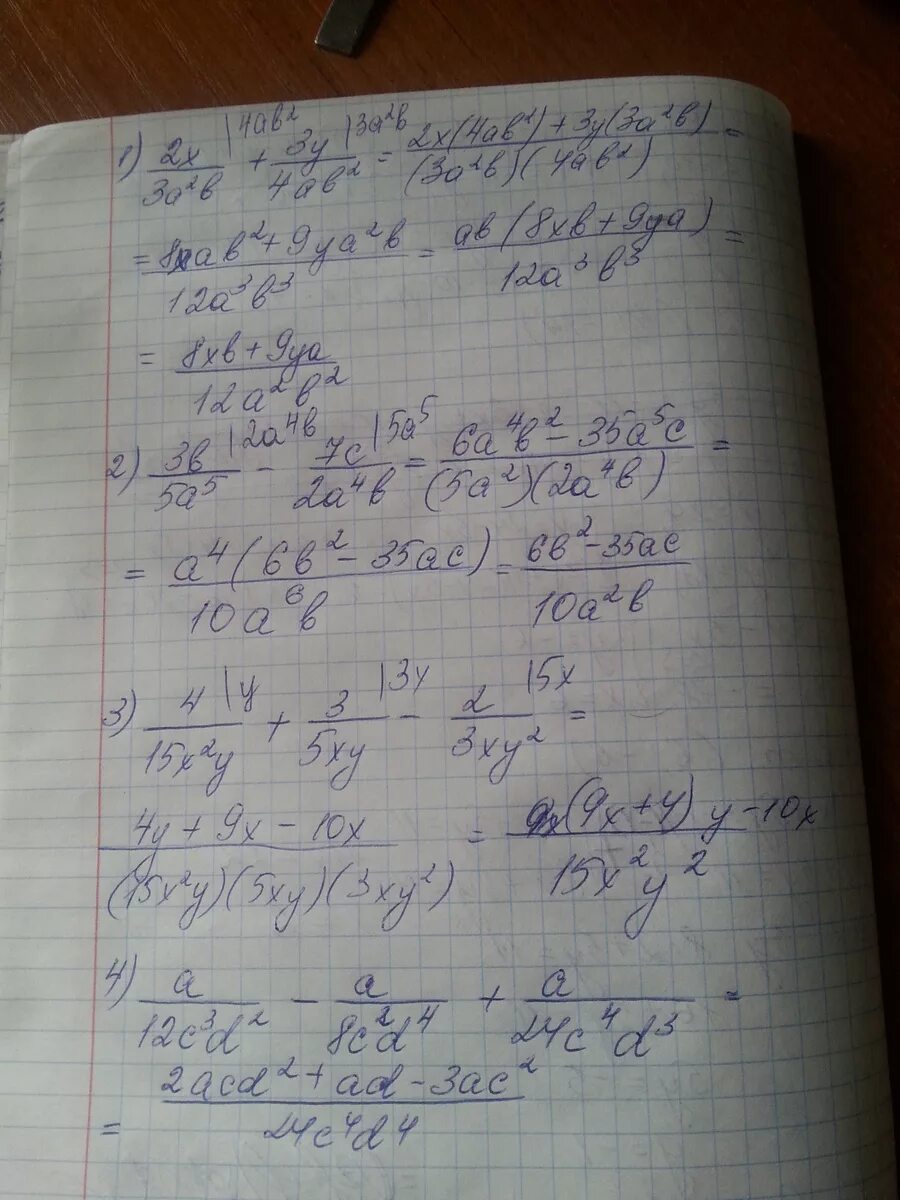 1) 2x/3a²b |4ab² + 3y/4ab² |3a²b = (2x(4ab²) + 3y(3a²b))/((3a²b)(4ab²)) =
= (8xab² + 9ya²b)/12a³b³ = ab(8xb + 9ya)/12a³b³ =
= (8xb + 9ya)/12a²b²
2) 3b/5a⁵ |2a⁴b − 7c/2a⁴b |5a⁵ = (6a⁴b² − 35a⁵c)/((5a²)(2a⁴b)) =
= a⁴(6b² − 35ac)/10a⁶b = (6b² − 35ac)/10a²b
3) 4/15x²y |y + 3/5xy |3y − 2/3xy² |5x =
(4y + 9x − 10x)/((15x²y)(5xy)(3xy²)) = (9x+4)y − 10x/15x²y²
4) a/12c³d² − a/8c²d⁴ + a/24c⁴d³ =
= (2acd² + ad − 3ac²)/24c⁴d⁴